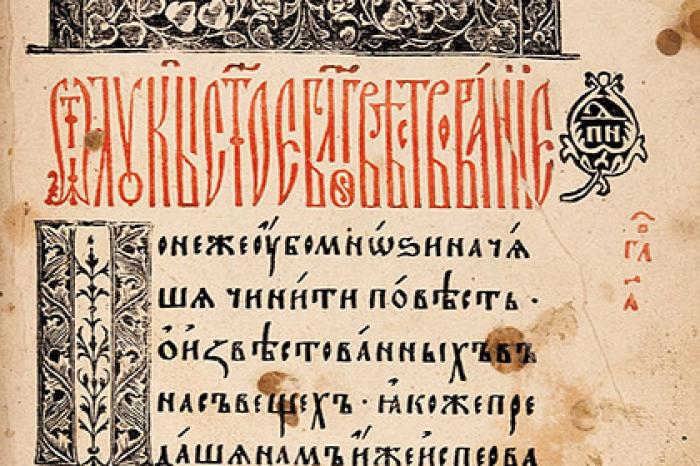 Ѿ лꙋкы ст҃ое бл҃говѣствова́нїе
пн
Поне́же оу҆́бо мнѡ́ѕи нача́
шѧ чини́ти по́вѣсть ·
ѻ҆ и҆звѣстова́нныхъ въ
насъ ве́щехъ · ꙗ҆́коже пре
да́шѧ на́мъ и҆̀же и҆спе́рва
гл
а